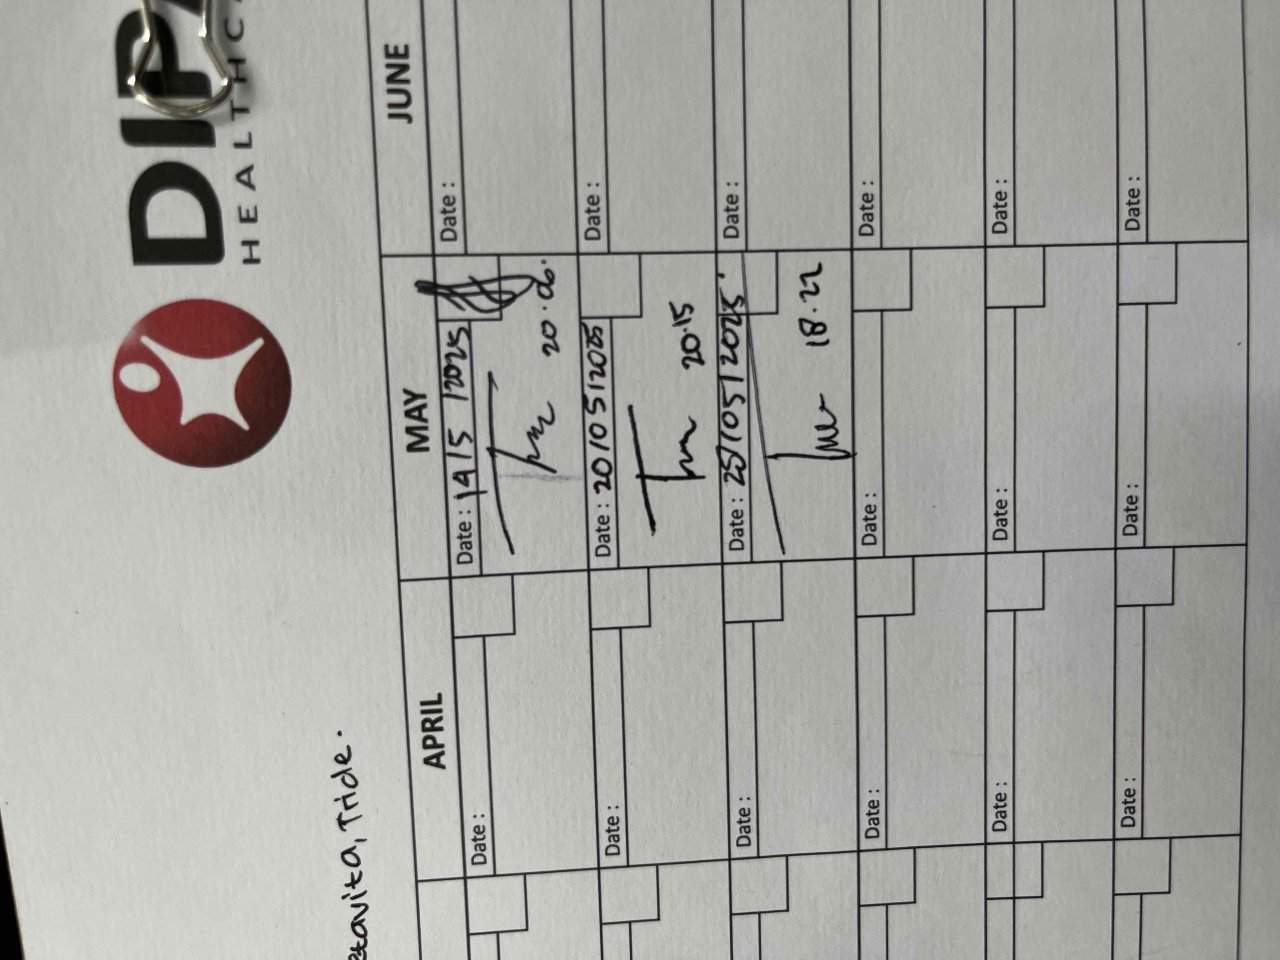 HEALTHC
tavita, Tride.
APRIL
MAY
JUNE
Date :
Date : 14/5 /2025
Date :
20.06.
Date :
Date : 20/05/2025
Date :
20.15
Date :
Date : 25/05/2025
Date :
18.22
Date :
Date :
Date :
Date :
Date :
Date :
Date :
Date :
Date :